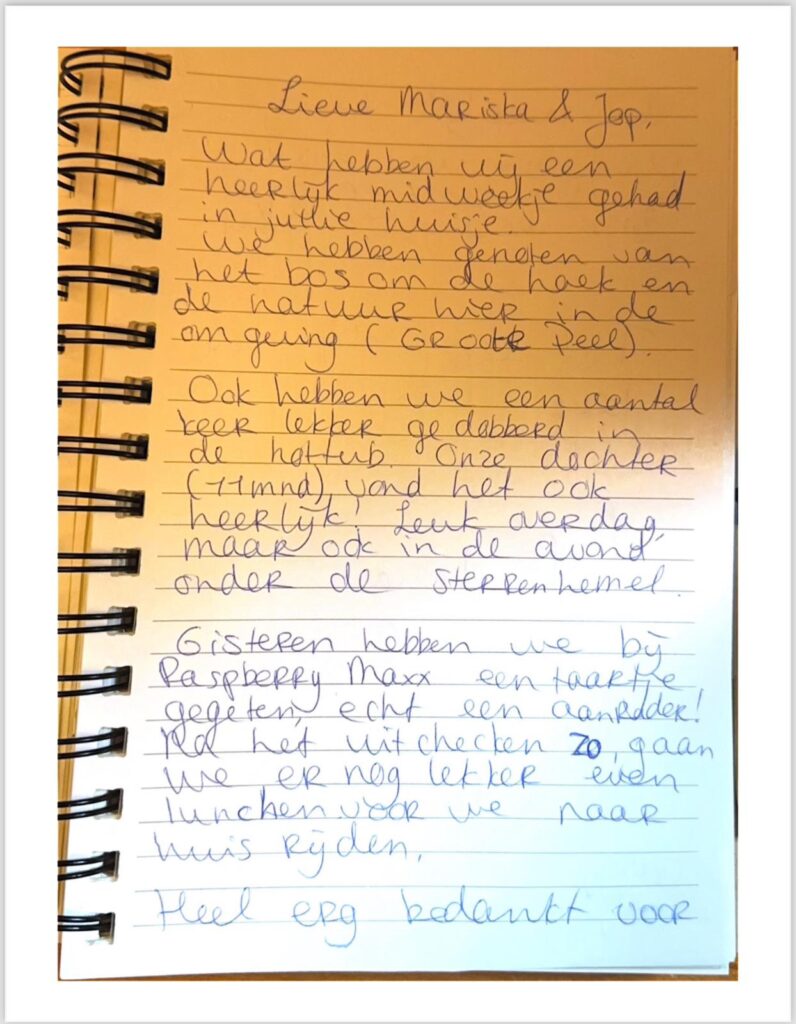 Lieve Mariska & Jop,
Wat hebben wij een
heerlijk midweekje gehad
in jullie huisje.
We hebben genoten van
het bos om de hoek en
de natuur hier in de
omgeving (GROOTE Peel).
Ook hebben we een aantal
keer lekker gedobberd in
de hottub. Onze dochter
(11mnd) vond het ook
heerlijk! Leuk overdag,
maar ook in de avond
onder de sterrenhemel.
Gisteren hebben we bij
Raspberry Maxx een taartje
gegeten, echt een aanrader!
Na het uitchecken zo, gaan
we er nog lekker even
lunchen voor we naar
huis rijden.
Heel erg bedankt voor